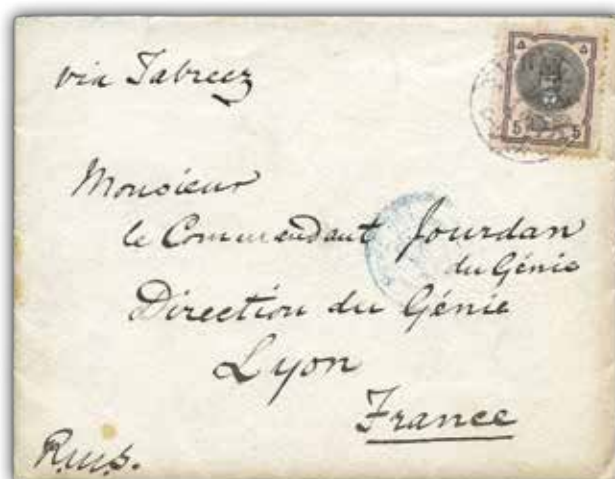 via Tabreez
۵ ۵
5 5
Monsieur
le Commandant Jourdan
du Génie
Direction du Génie
Lyon
France